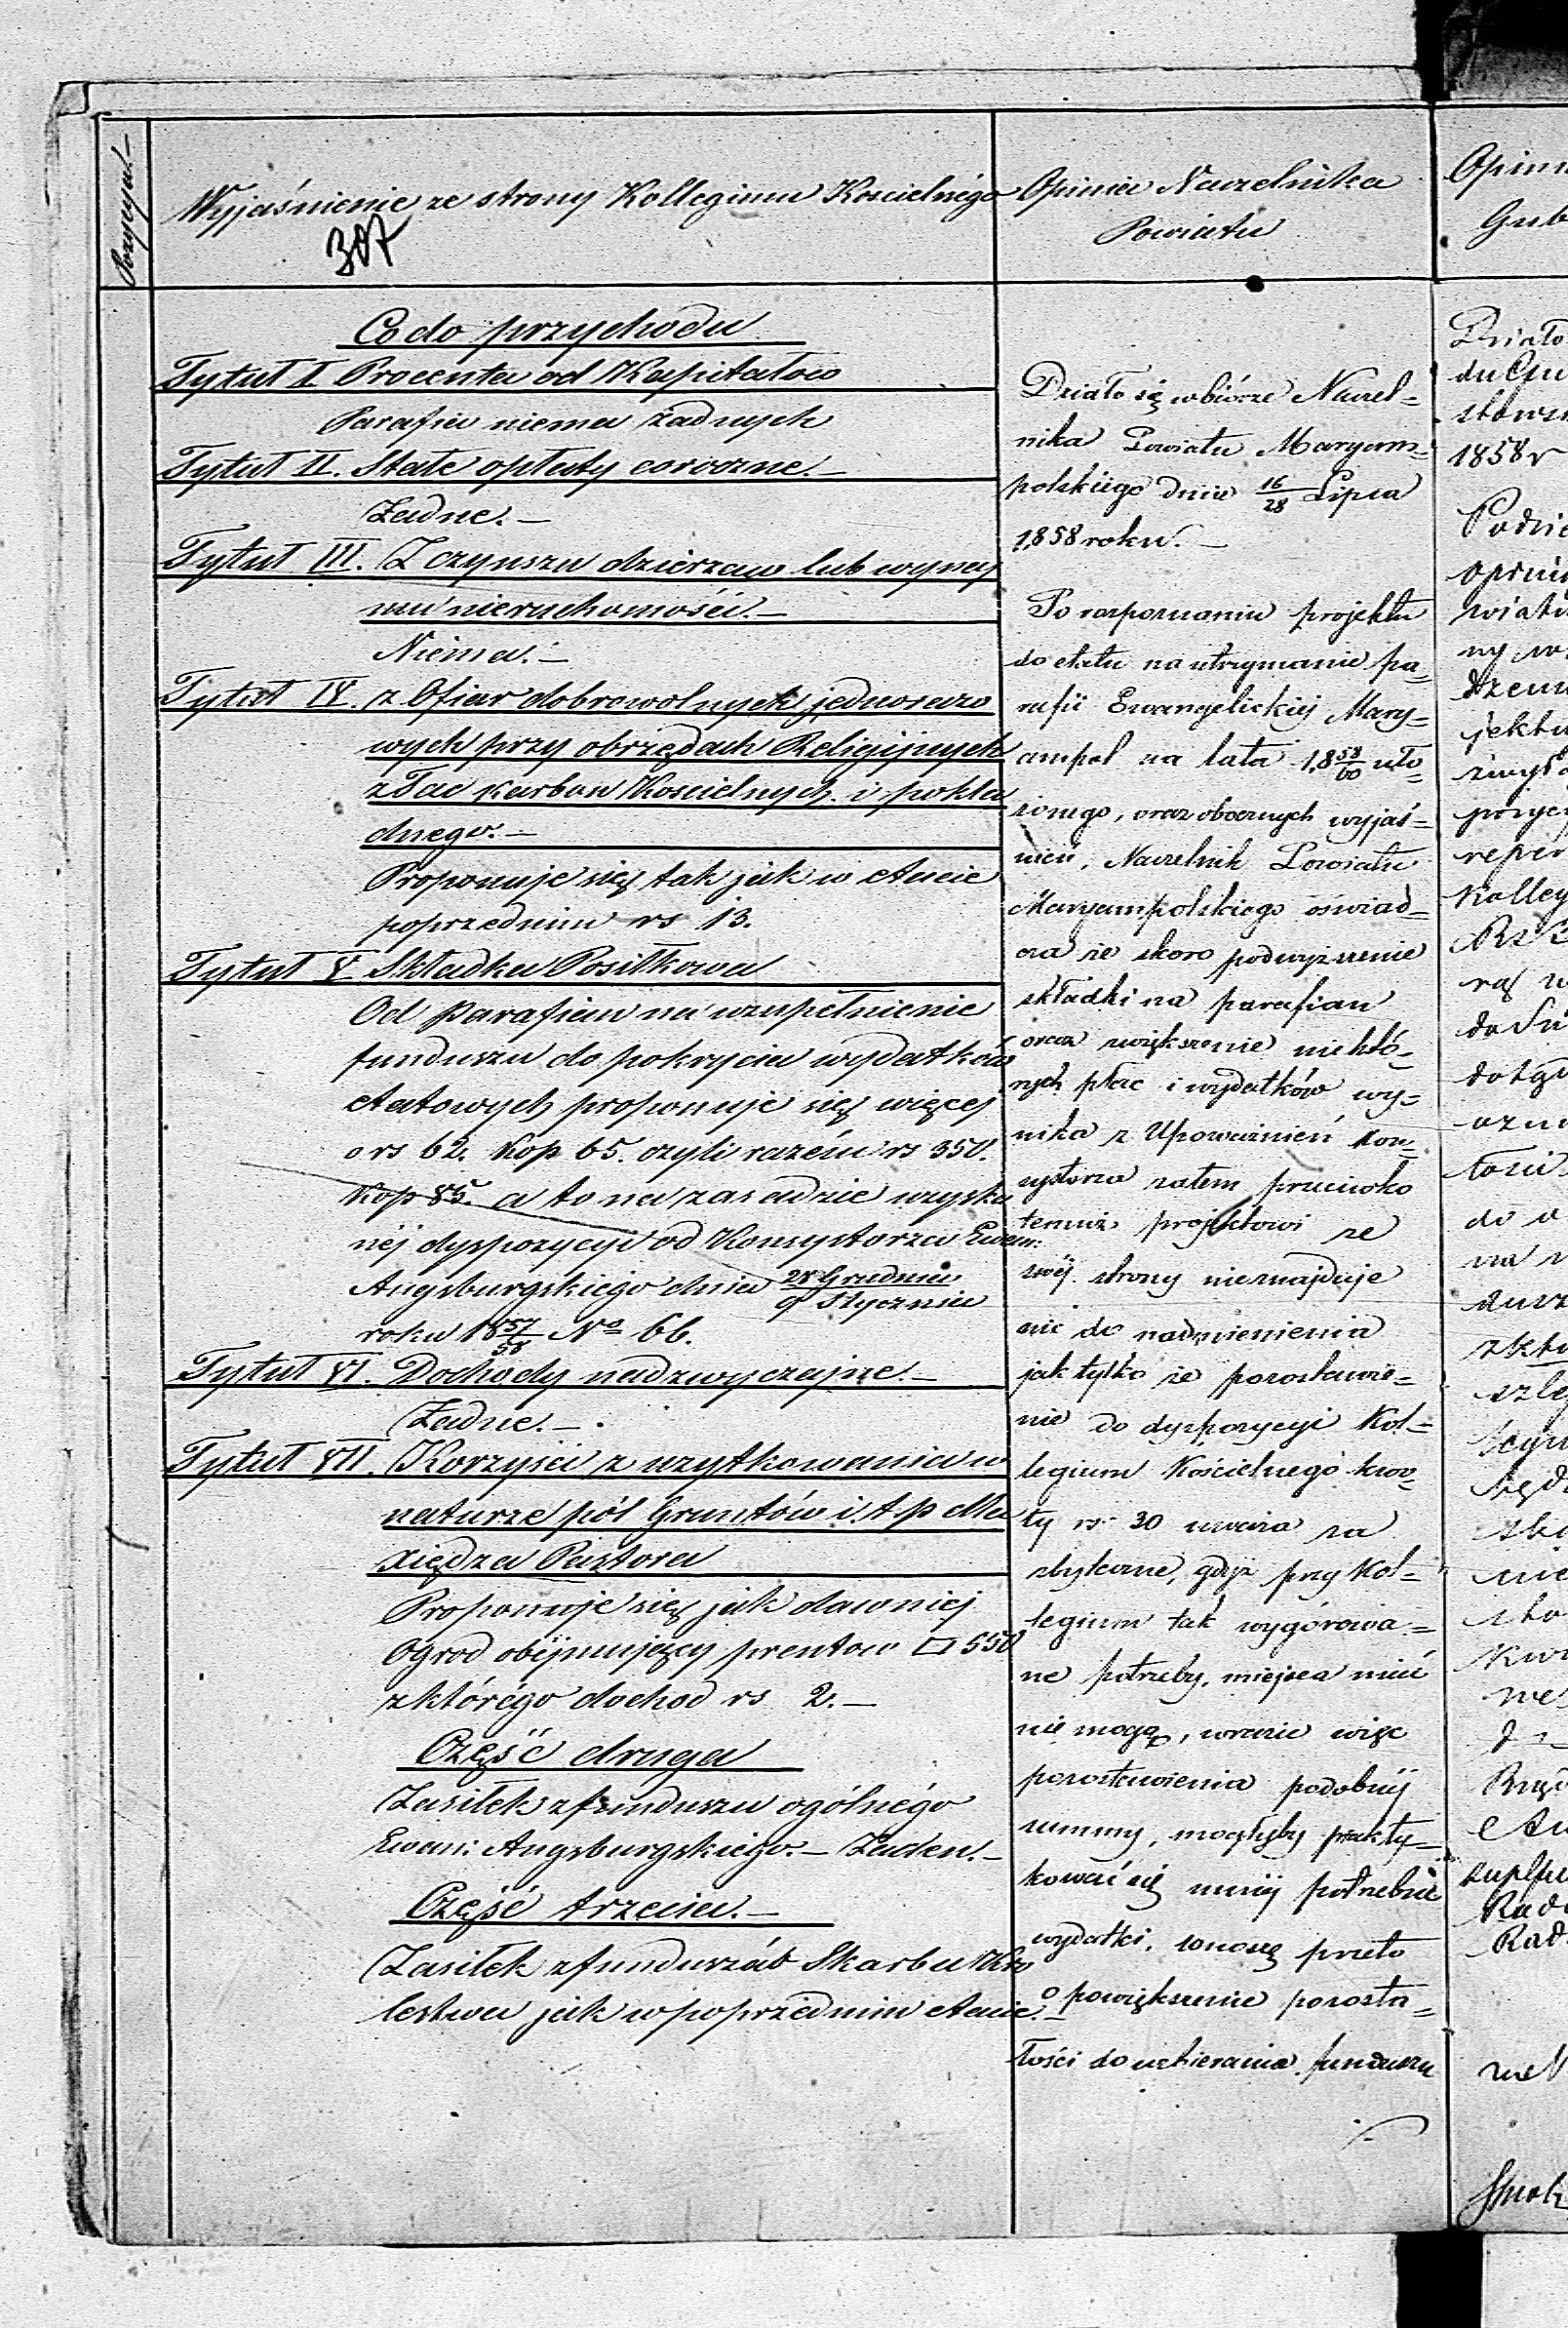 Pozycya.—
Wyjaśnienie ze strony Kollegium Kościelnégo
307
Co do przychodu
Tytuł I Procenta od Kapitałow
Parafia niema żadnych
Tytuł II. Stałe opłaty coroczne.—
Żadne.—
Tytuł III. Z czynszu dzierzaw lub wynaj
mu nieruchomości.—
Niema.—
Tytuł IV. z Ofiar dobrowolnych jednorazo
wych przy obrzędach Religijnych
z Tac karbon Kościelnych i pokła
dnego.—
Proponuje się tak jak w etacie
poprzednim rs 13.
Tytuł V Składka Posiłkowa
Od Parafian na uzupełnienie
funduszu do pokrycia wydatków
etatowych proponuje się więcej
o rs 62. Kop 65. czyli razém rs 350.
Kop 85. a to na zasadzie uzyska
néj dyspozycyi od Konsystorza Ewan:
Augsburgskiego dnia 28 Grudnia/9 Stycznia
roku 18 57/58 No 66.
Tytuł VI. Dochody nadzwyczajne.—
Żadne.—
Tytuł VII. Korzyści z uzytkowania w
naturze pól Gruntów i.t.p dla
xiędza Pastora
Proponuje się jak dawniej
Ogrod obijmujący prentow □ 550
z którégo dochod rs 2.—
Część druga
Zasiłek z funduszu ogólnégo
Ewan: Augsburgskiego.— Żaden.—
Część trzecia.—
Zasiłek z funduszów Skarbu Kro
lestwa jak w poprzednim etacie.—
Opinia Naczelnika
Powiatu
Działo się w biórze Naczel=
nika Powiatu Maryam=
polskiego dnia 16/28 Lipca
1858 roku.—
Po rozpoznaniu projektu
do etatu na utrzymanie pa=
rafii Ewangelickiéj Mary=
ampol na lata 18 58/60 uło=
zonego, oraz obocznych wyjaś=
nień, Naczelnik Powiatu
Maryampolskiego oświad=
cza ze skoro podwyzszenie
składki na parafian
oraz zwiększenie niektó=
rych płac i wydatków wy=
nika z Upoważnień Kon=
systorza zatem przeciwko
temuz projektowi ze
swéj strony nieznajduje
nic do nadmienienia
jak tylko ze pozostawie=
nie do dyspozycyi Kol=
legium Kościelnego kwo=
ty rs 30 uwaza za
zbyteczne, gdyz przy Kol=
legium tak wygórowa=
ne potrzeby, miejsca mieć
nie mogą, w razie więc
pozostawienia podobnéj
summy, mogłyby prakty=
kować się mniéj potrzebne
wydatki, wnoszę przeto
o powiększenie pozosta=
łości do uzbierania funduszu
Opini
Gub
Działo
du Gu
1858 r